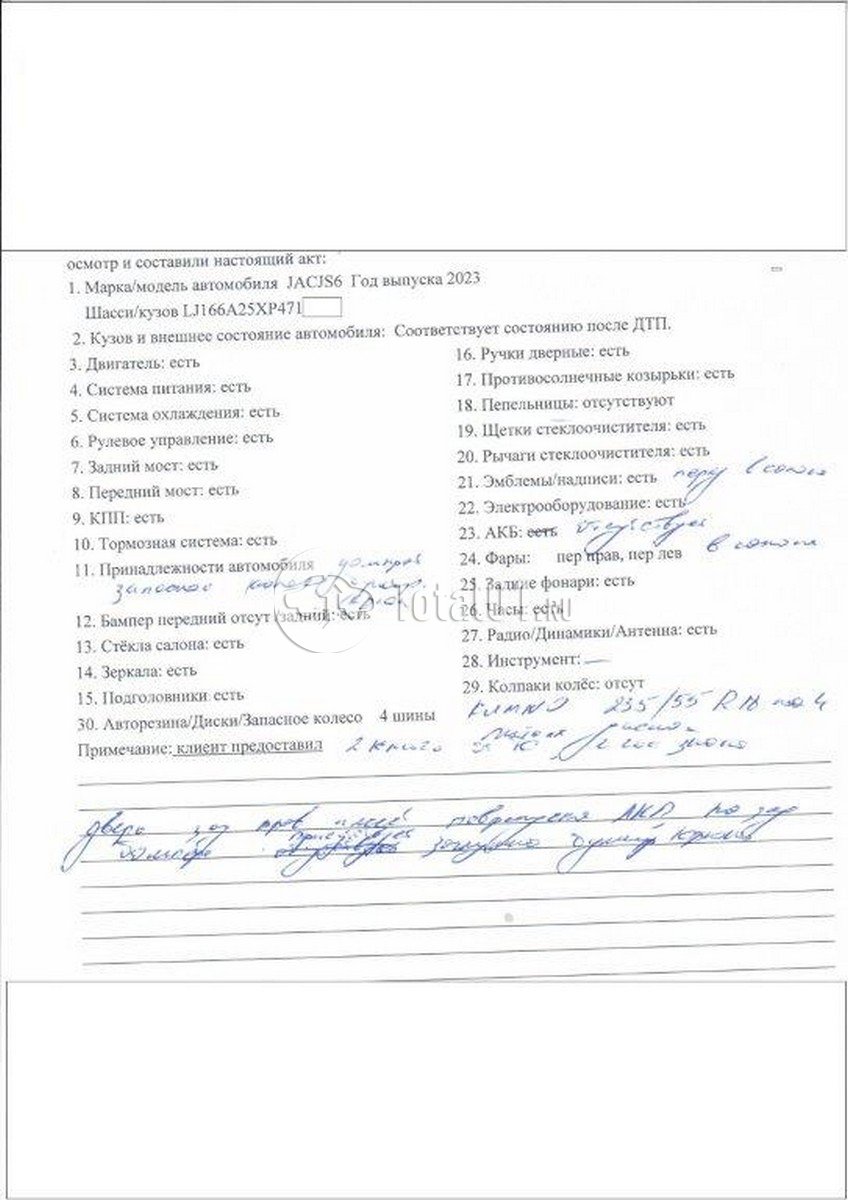 осмотр и составили настоящий акт:
1. Марка/модель автомобиля JACJS6 Год выпуска 2023
Шасси/кузов LJ166A25XP471
2. Кузов и внешнее состояние автомобиля: Соответствует состоянию после ДТП.
3. Двигатель: есть
4. Система питания: есть
5. Система охлаждения: есть
6. Рулевое управление: есть
7. Задний мост: есть
8. Передний мост: есть
9. КПП: есть
10. Тормозная система: есть
11. Принадлежности автомобиля домкрат
запасное колесо
12. Бампер передний отсут /задний: есть
13. Стёкла салона: есть
14. Зеркала: есть
15. Подголовники есть
16. Ручки дверные: есть
17. Противосолнечные козырьки: есть
18. Пепельницы: отсутствуют
19. Щетки стеклоочистителя: есть
20. Рычаги стеклоочистителя: есть
21. Эмблемы/надписи: есть перед в салоне
22. Электрооборудование: есть
23. АКБ: есть отсутствует
24. Фары: пер прав, пер лев в салоне
25. Задние фонари: есть
26. Часы: есть
27. Радио/Динамики/Антенна: есть
28. Инструмент: —
29. Колпаки колёс: отсут
30. Авторезина/Диски/Запасное колесо 4 шины 235/55 R18
Примечание: клиент предоставил 2 ключа 2 гос знака
дверь зад прав имеет повреждения ЛКП
Total01.ru